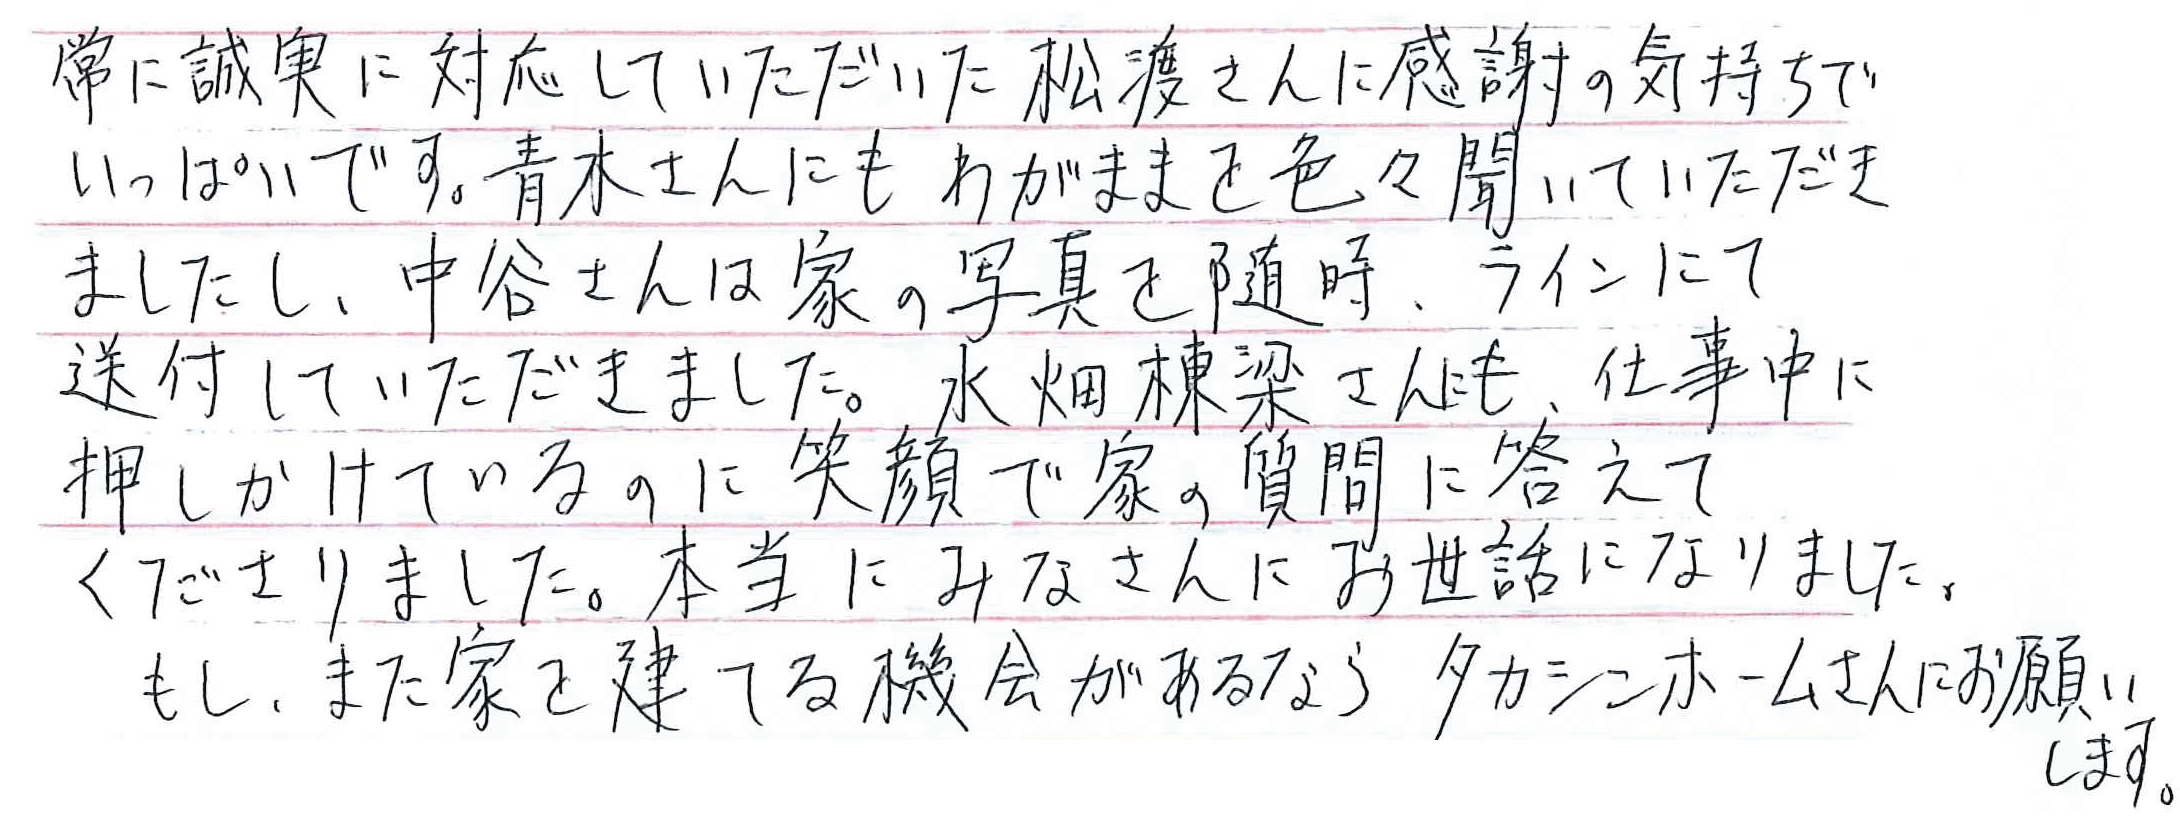 常に誠実に対応していただいた松渡さんに感謝の気持ちで
いっぱいです。青木さんにもわがままを色々聞いていただき
ましたし、中谷さんは家の写真を随時、ラインにて
送付していただきました。水畑棟梁さんにも、仕事中に
押しかけているのに笑顔で家の質問に答えて
くださりました。本当にみなさんにお世話になりました。
もし、また家を建てる機会があるなら タカシンホームさんにお願い
します。